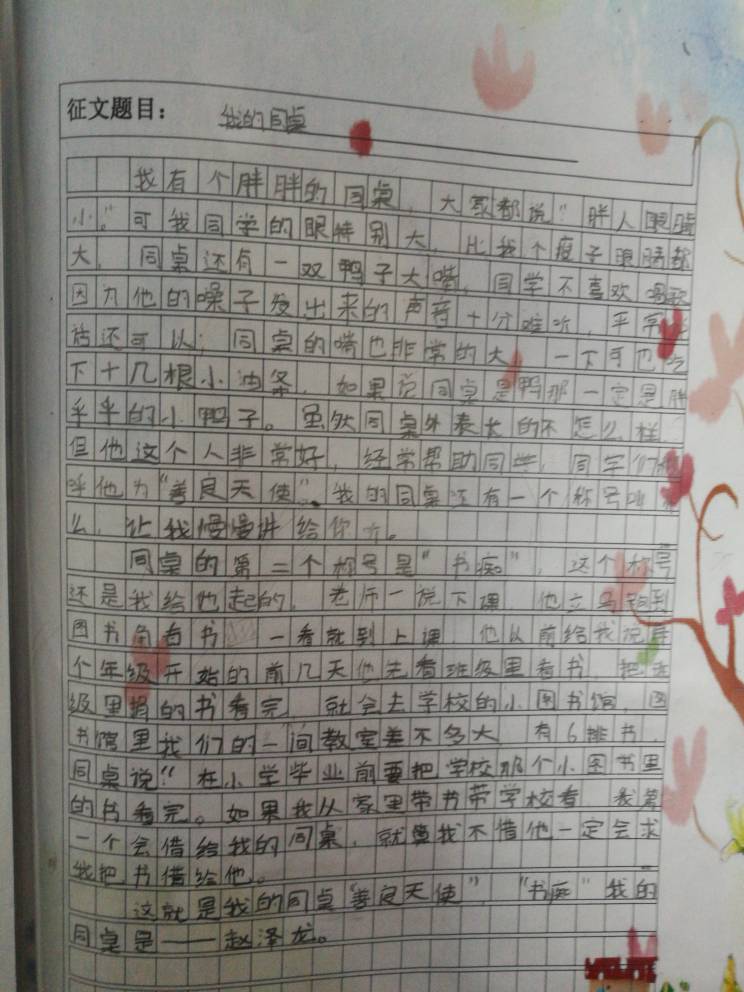 征文题目：我的同桌
我有个胖胖的同桌，大家都说“胖人眼睛
小。”可我同学的眼特别大，比我个瘦子眼睛都
大，同桌还有一双鸭子大嘴，同学不喜欢唱歌
因为他的嗓子发出来的声音十分难次，平常
话还可以；同桌的嘴也非常的大，一下可也吃
下十几根小油条，如果说同桌是鸭那一定是胖
乎乎的小鸭子。虽然同桌外表长的不怎么样，
但他这个人非常好，经常帮助同学，同学们
呼他为“善良天使”。我的同桌还有一个称号叫
么，让我慢慢讲给你方。
同桌的第二个称号是“书痴”，这个称号
还是我给他起的，老师一说下课，他立马跑到
图书角看书，一看就到上课，他以前给我说每
个年级开始的前几天他先看班级里看书，把班
级里捐的书看完，就会去学校的小图书馆，图
书馆里我们的一间教室差不多大，有6排书，
同桌说“在小学毕业前要把学校那个小图书里
的书看完。如果我从家里带书带学校看，我第
一个会借给我的同桌，就算我不借他一定会求
我把书借给他。
这就是我的同桌“善良天使”，“书痴”我的
同桌是——赵泽龙。